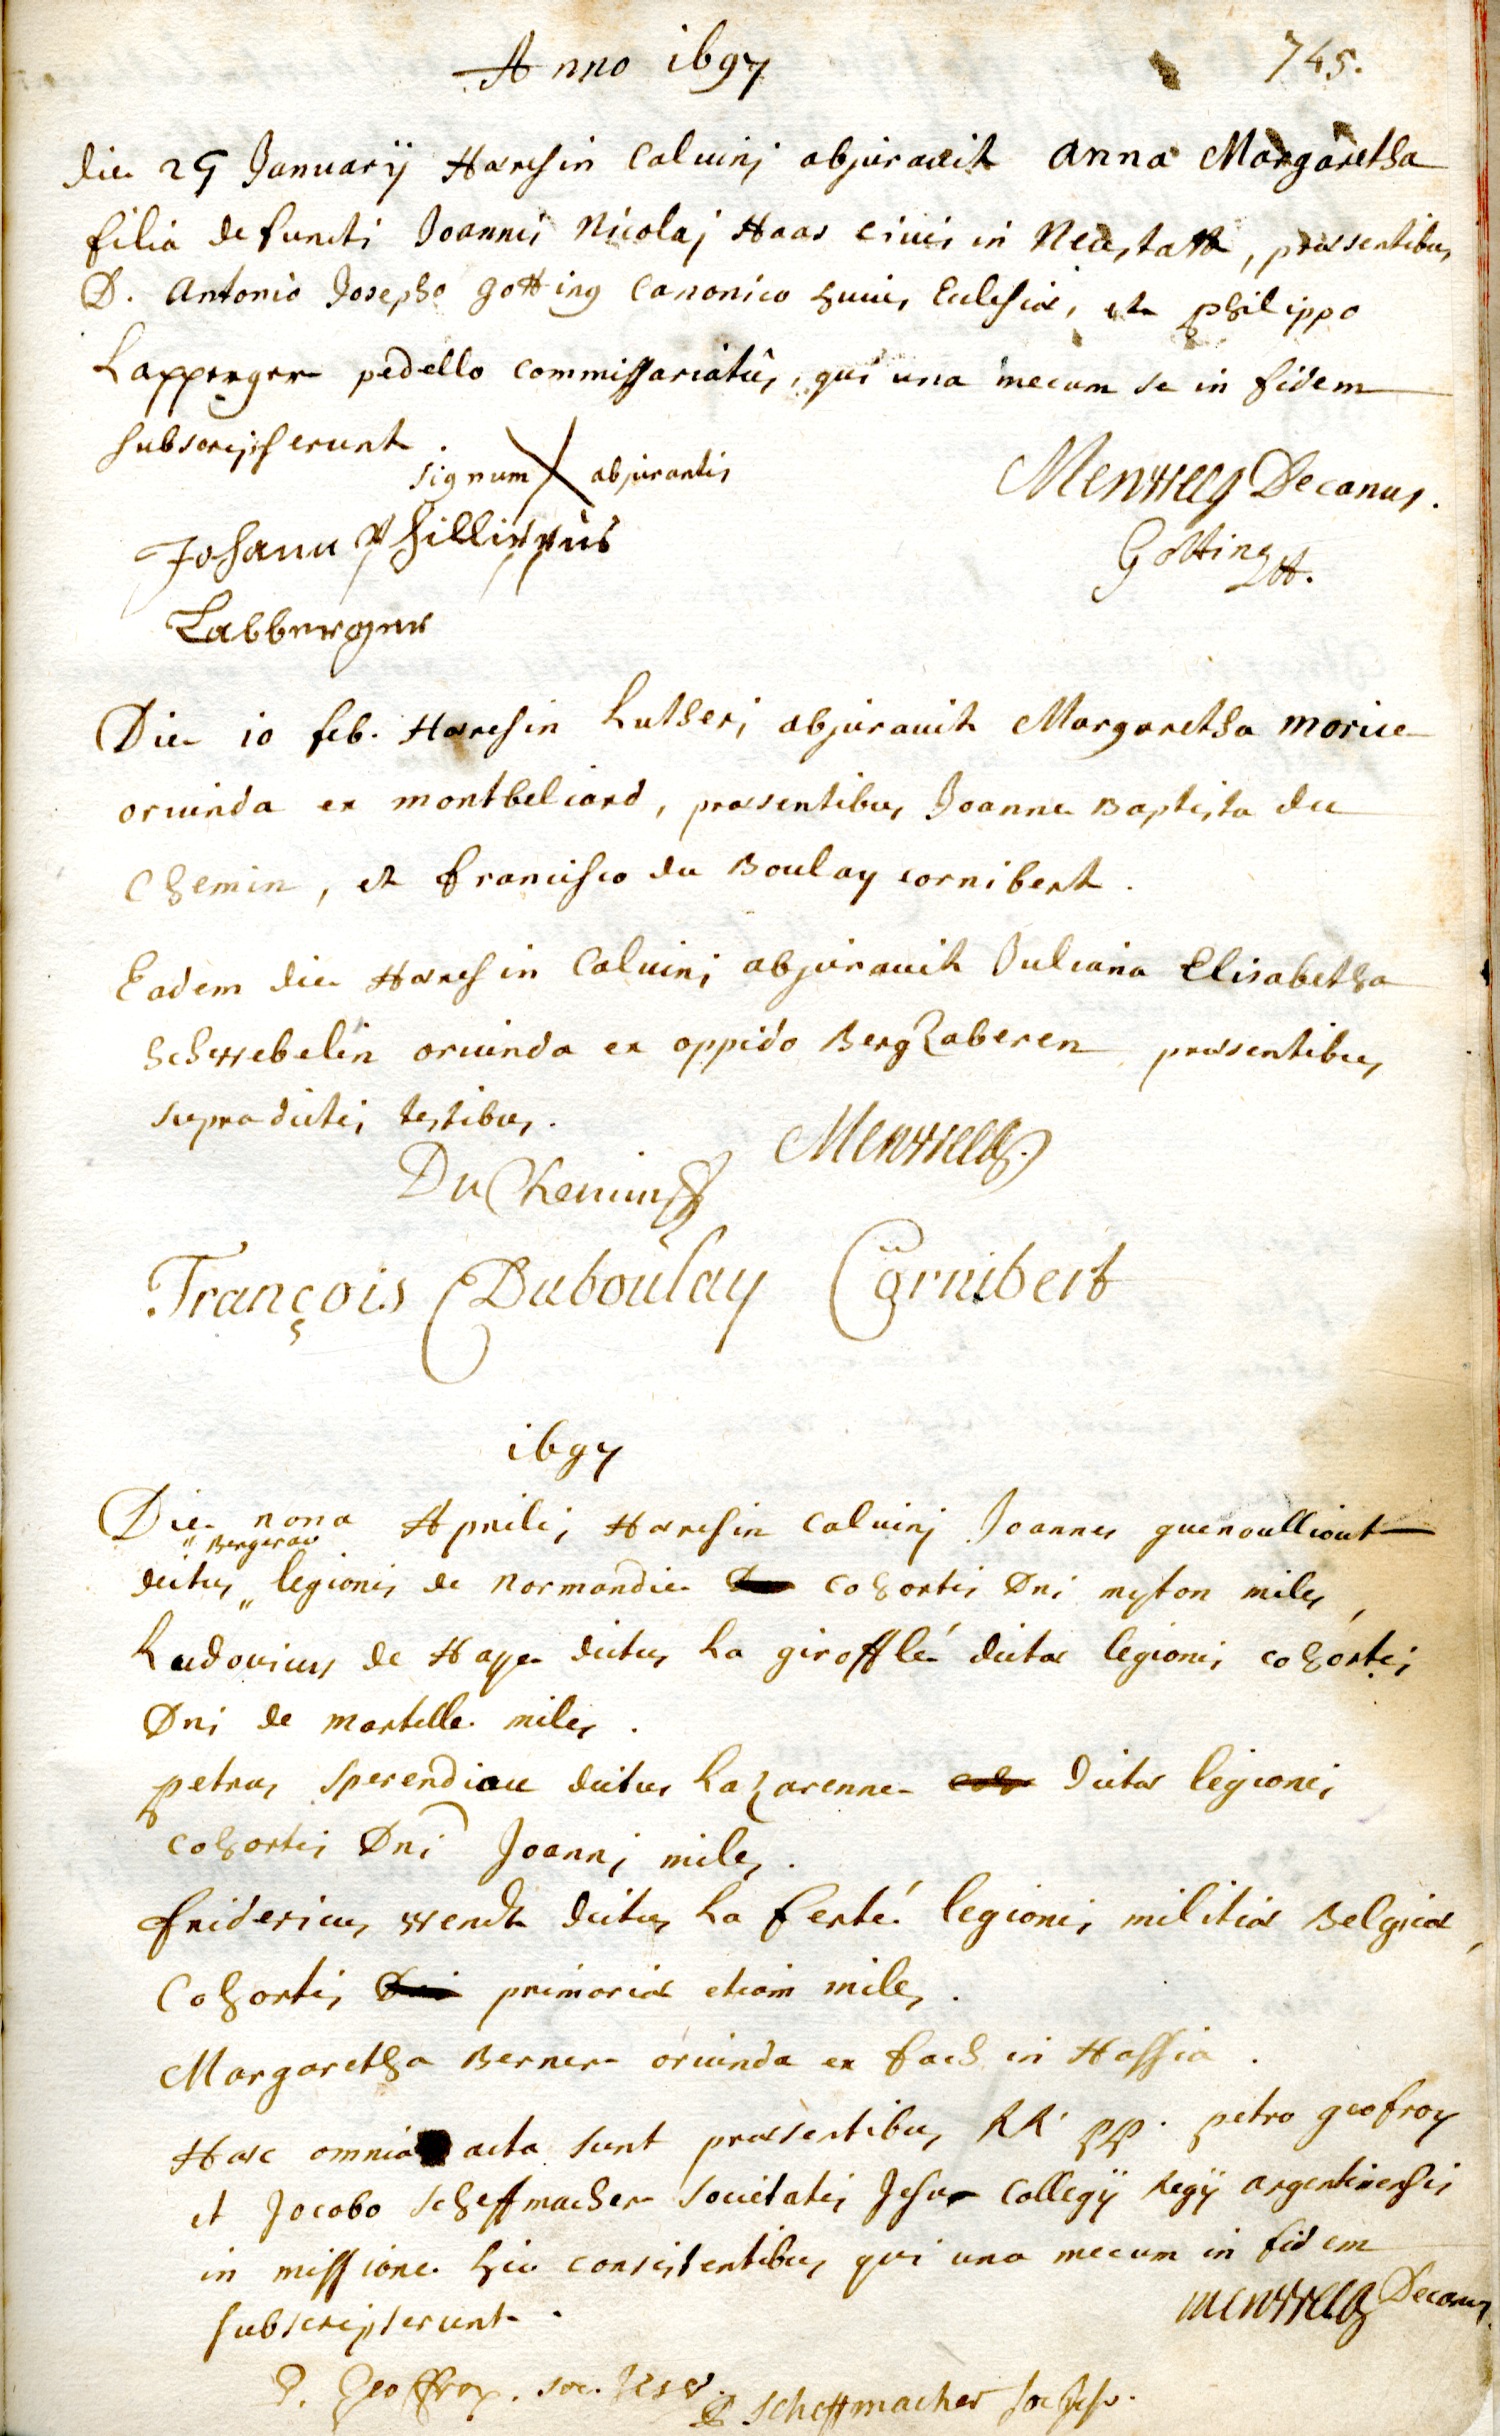 Anno 1697
745.
die 29 Januarij Hæresin Calvinj abjuravit Anna Margaretha
filia defuncti Joannis Nicolaj Haas civis in Neustatt, præsentibus
D. Antonio Josepho Gotting Canonico huius Ecclesiæ, et Philippo
Lapperger pedello commissariatûs, qui una mecum se in fidem
subscripserunt.
signum X abjurantis
Menweg Decanus.
Johann Phillippus
Gotting
Labberger
Die 10 feb. Hæresin Lutherj abjuravit Margaretha morice
oriunda ex montbeliard, præsentibus Joanne Baptista du
Chemin, et francisco du Boulay cornibert.
Eadem die Hæresin Calvinj abjuravit Juliana Elisabetha
Schwebelin oriunda ex oppido BergZaberen præsentibus
supradictis testibus.
Menweg
DuChemin
François Duboulay Cornibert
1697
Die nona Aprilis Hæresin Calvinj Joannes guenoulliout
" Bergerac
dictus " legionis de Normandie cohortis Dni myton miles,
Ludovicus de Haye dictus La girofflé dictæ legionis cohortis
Dni de martelle miles.
petrus Sperendieu dictus LaZarenne dictæ legionis
cohortis Dni Joannj miles.
fridericus wendt dictus La ferté legionis militiæ Belgicæ,
Cohortis primariæ etiam miles.
Margaretha Berner oriunda ex fach in Hassia.
Hæc omnia acta sunt præsentibus RR. PP. petro geofroy
et Jacobo scheffmacher Societatis Jesu Collegij Regij argentinensis
in missione hic consistentibus qui una mecum in fidem
subscripserunt.
menweg Decanus.
P. Geoffroy. soc. Jesu.
P scheffmacher soc Jesu.